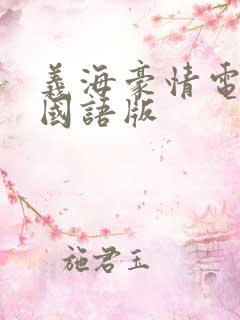 義海豪情電
國語版
施君玉